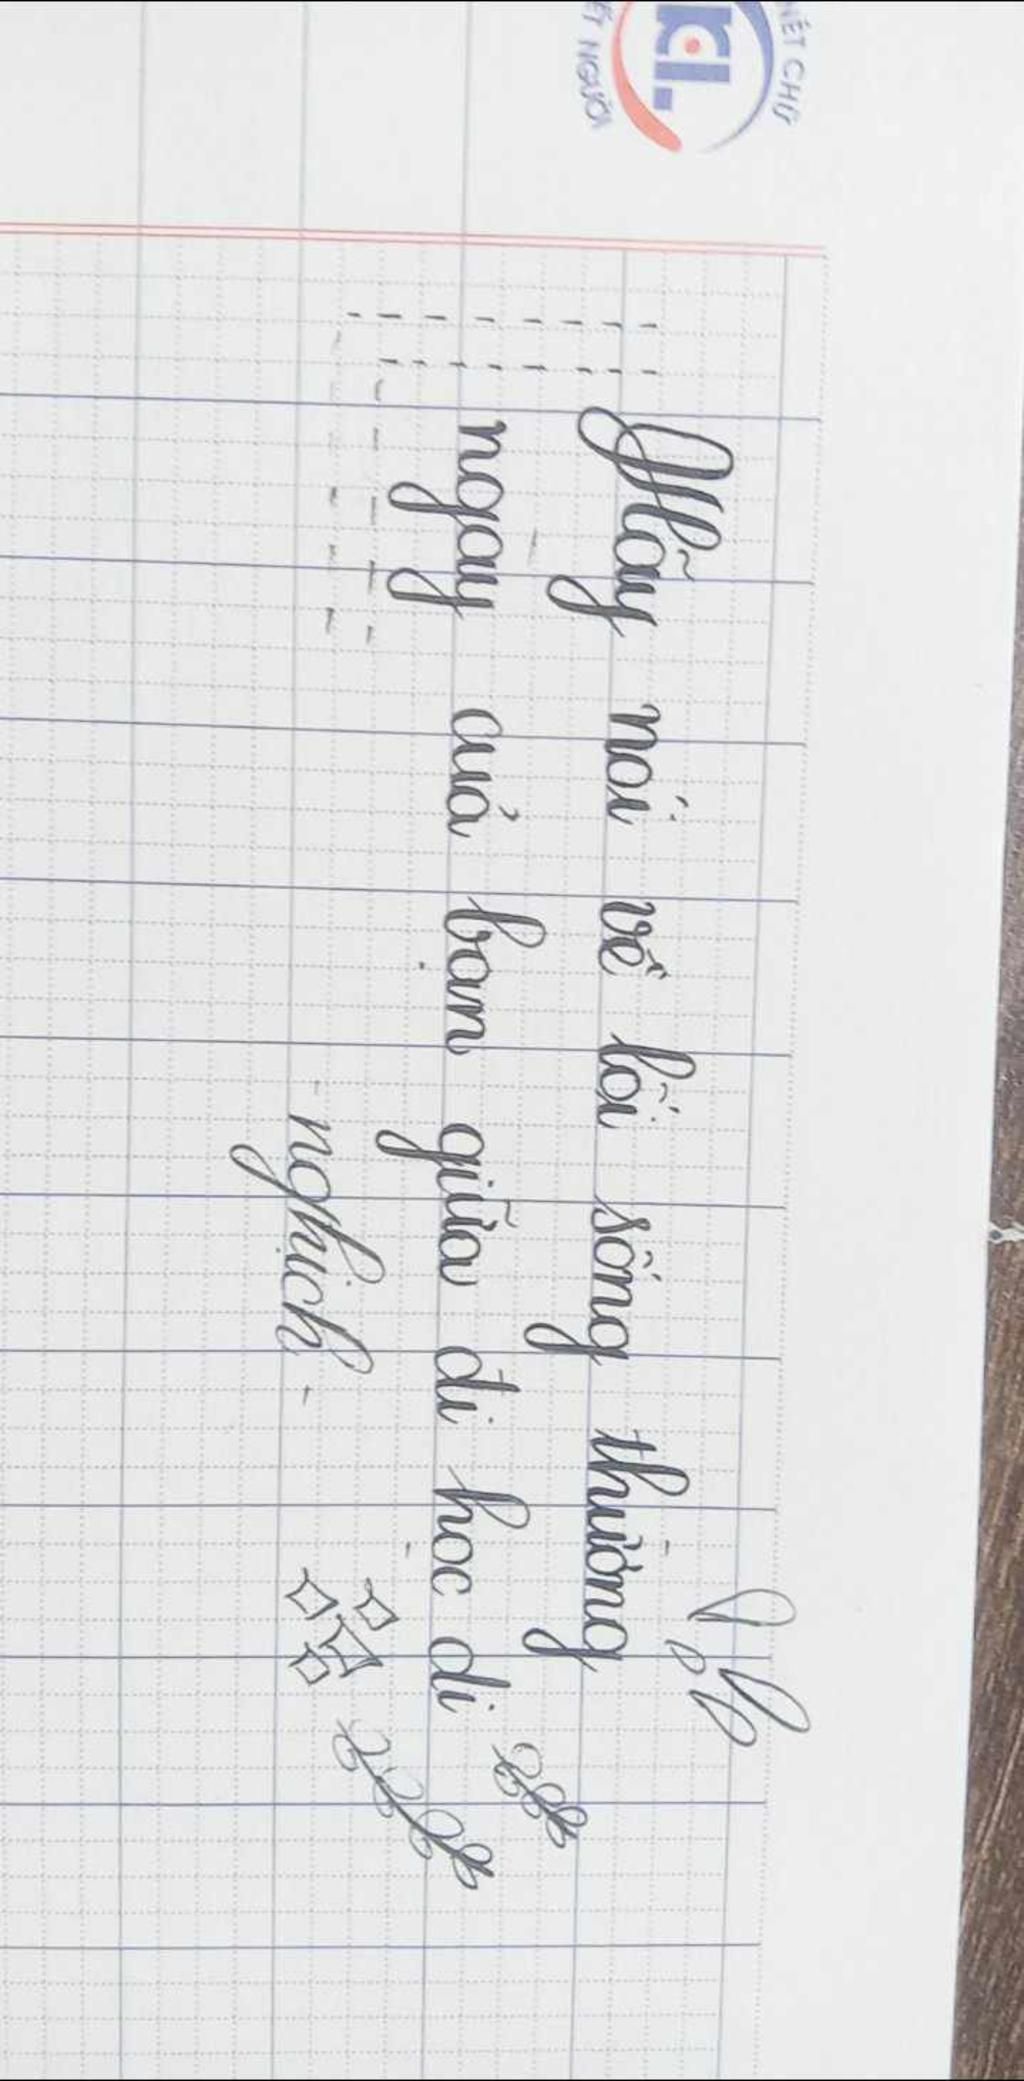 NÉT CHỮ
NẾT NGƯỜI
Hãy nói về lối sống thường
ngay cuả ban giữa đi hoc di
- nghịch -